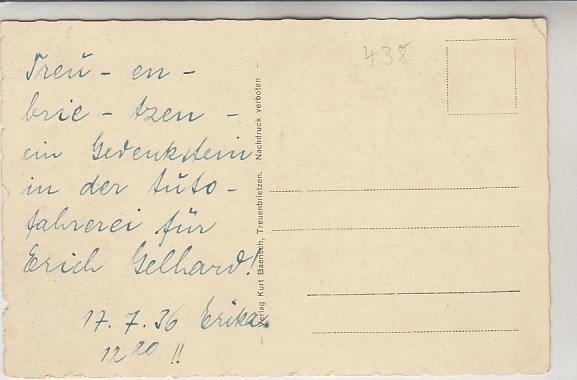 Treu - en -
brie - tzen -
ein Gedenkstein
in der Auto -
fahrerei für
Erich Gelhard!
17. 7. 36 Erika.
12²⁰ !!
438
Verlag Kurt Baensch, Treuenbrietzen. Nachdruck verboten